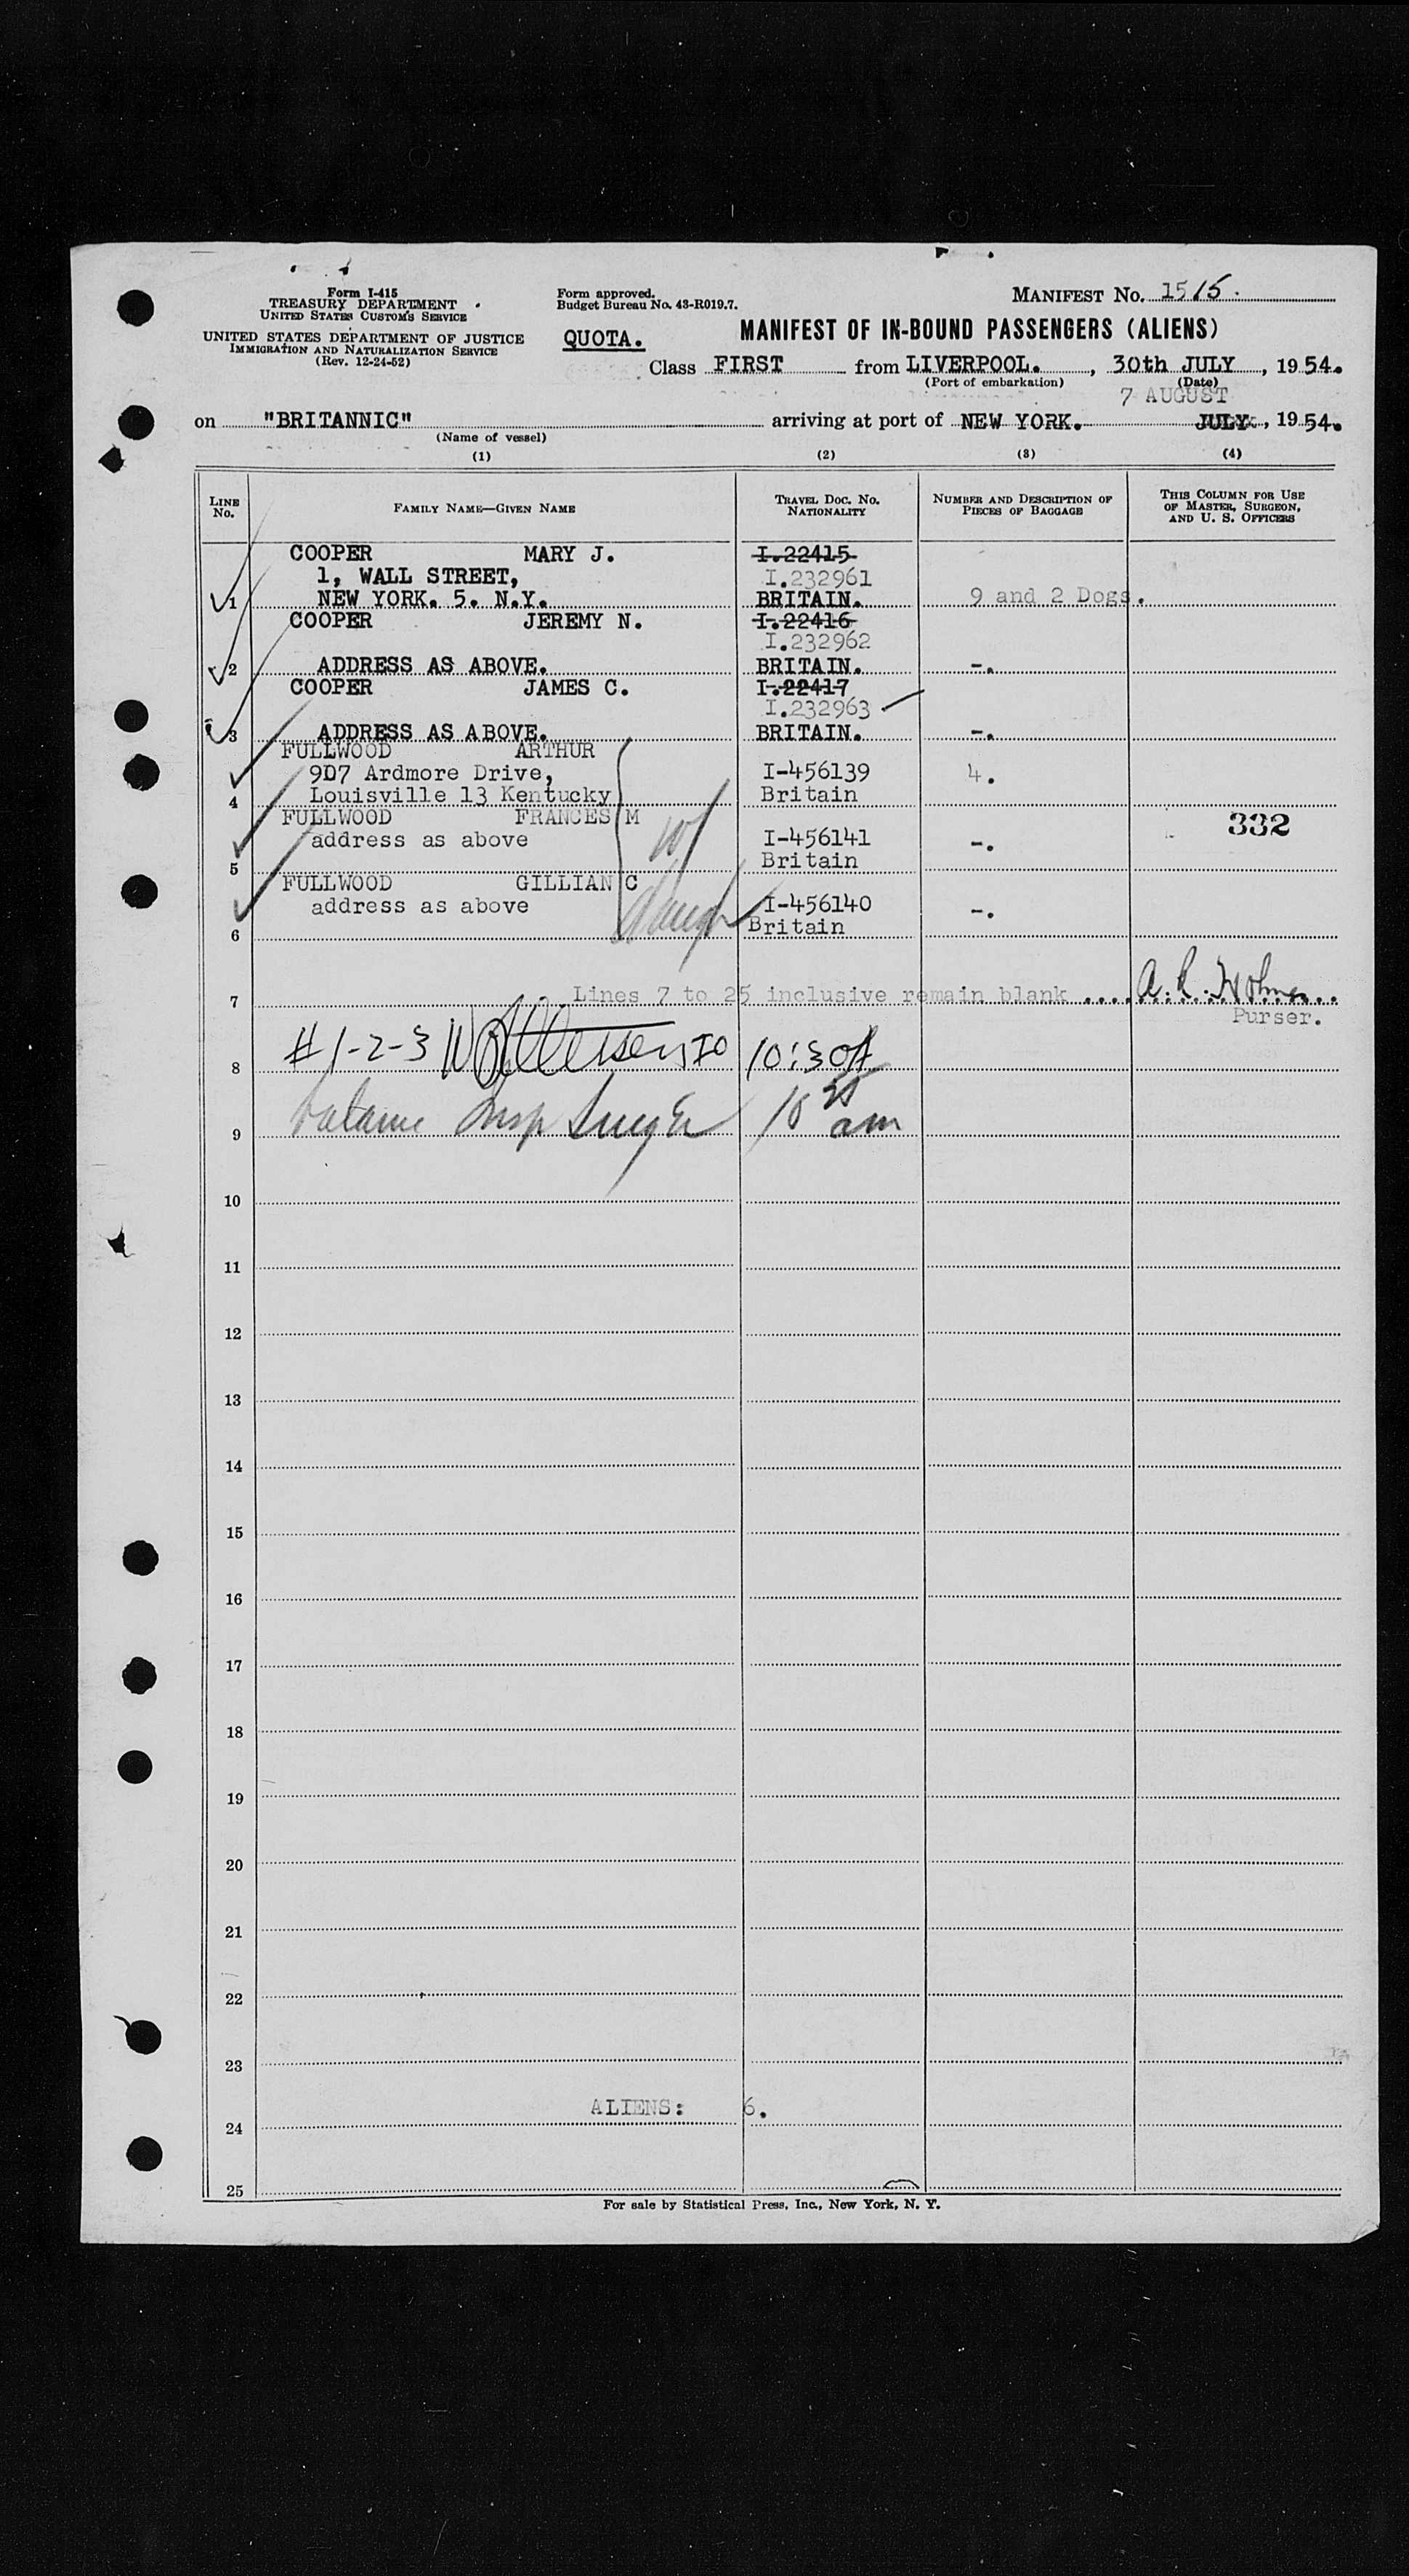 Form I-415
TREASURY DEPARTMENT
UNITED STATES CUSTOMS SERVICE
UNITED STATES DEPARTMENT OF JUSTICE
IMMIGRATION AND NATURALIZATION SERVICE
(Rev. 12-24-52)
Form approved.
Budget Bureau No. 43-R019.7.
QUOTA.
MANIFEST No. 1515.
MANIFEST OF IN-BOUND PASSENGERS (ALIENS)
Class FIRST from LIVERPOOL. , 30th JULY , 1954.
(Port of embarkation) (Date)
7 AUGUST
on "BRITANNIC" arriving at port of NEW YORK. JULY , 1954.
(Name of vessel)
(1) (2) (3) (4)
LINE No. FAMILY NAME—GIVEN NAME TRAVEL DOC. No. NATIONALITY NUMBER AND DESCRIPTION OF PIECES OF BAGGAGE THIS COLUMN FOR USE OF MASTER, SURGEON, AND U. S. OFFICERS
COOPER MARY J. I.22415
1, WALL STREET, I.232961
1 NEW YORK. 5. N.Y. BRITAIN. 9 and 2 Dogs.
COOPER JEREMY N. I.22416
I.232962
2 ADDRESS AS ABOVE. BRITAIN. -.
COOPER JAMES C. I.22417
I.232963
3 ADDRESS AS ABOVE. BRITAIN. -.
FULLWOOD ARTHUR
907 Ardmore Drive, I-456139 4.
4 Louisville 13 Kentucky Britain
FULLWOOD FRANCES M
address as above I-456141 -.
332
5 Britain
FULLWOOD GILLIAN C
address as above I-456140 -.
6 Britain
7 Lines 7 to 25 inclusive remain blank ....
Purser.
8 #1-2-3 IO 10:30A
9 Balance Insp 10 25 am
10
11
12
13
14
15
16
17
18
19
20
21
22
23
ALIENS: 6.
24
25
For sale by Statistical Press, Inc., New York, N. Y.